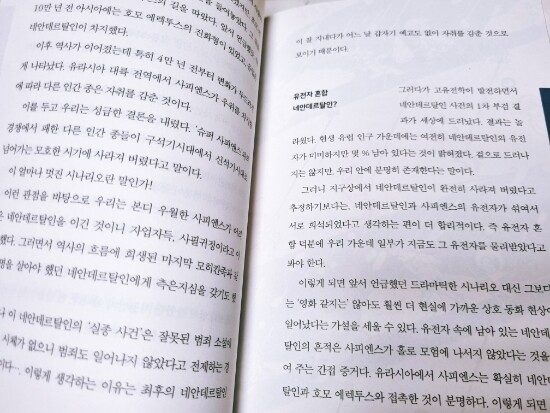 10만 년 전 아시아에는 호모 에렉투스의 진화형이 있었고
네안데르탈인이 차지했다.
이후 역사가 이어졌는데 특히 4만 년 전부터 변화가
게 나타났다. 유라시아 대륙 전역에서 사피엔스가 우위를
에 따라 다른 인간 종은 자취를 감춘 것이다.
이를 두고 우리는 성급한 결론을 내렸다. '슈퍼 사피엔스
경쟁에서 패한 다른 인간 종들이 구석기시대에서 신석기시대로
넘어가는 모호한 시기에 사라져 버렸다고 말이다.
이 얼마나 멋진 시나리오란 말인가!
이런 관점을 바탕으로 우리는 본디 우월한 사피엔스가
은 네안데르탈인을 이긴 것이니 자업자득, 사필귀정이라고
했다. 그러면서 역사의 흐름에 희생된 마지막 모히칸족
명을 살아야 했던 네안데르탈인에게 측은지심을 갖기도
나 이 네안데르탈인의 '실종 사건'은 잘못된 범죄 소설에
시체가 없으니 범죄도 일어나지 않았다고 전제하는
이다…. 이렇게 생각하는 이유는 최후의 네안데르탈인
이 잘 지내다가 어느 날 갑자기 예고도 없이 자취를 감춘 것으로
보이기 때문이다.
유전자 혼합
네안데르탈인?
그러다가 고유전학이 발전하면서
네안데르탈인 사건의 1차 부검 결
과가 세상에 드러났다. 결과는 놀
라웠다. 현생 유럽 인구 가운데에는 여전히 네안데르탈인의 유전
자가 미미하지만 몇 % 남아 있다는 것이 밝혀졌다. 겉으로 드러나
지는 않지만, 우리 안에 분명히 존재한다는 말이다.
그러니 지구상에서 네안데르탈인이 완전히 사라져 버렸다고
추정하기보다는, 네안데르탈인과 사피엔스의 유전자가 섞여서
서로 희석되었다고 생각하는 편이 더 합리적이다. 즉 유전자 혼
합 덕분에 우리 가운데 일부가 지금도 그 유전자를 물려받았다고
봐야 한다.
이렇게 되면 앞서 언급했던 드라마틱한 시나리오 대신 그보다
는 '영화 같지는' 않아도 훨씬 더 현실에 가까운 상호 동화 현상이
일어났다는 가설을 세울 수 있다. 유전자 속에 남아 있는 네안데
르탈인의 흔적은 사피엔스가 홀로 모험에 나서지 않았다는 것을
여 주는 간접 증거다. 유라시아에서 사피엔스는 확실히 네안데
탈인과 호모 에렉투스와 접촉한 것이 분명하다. 이렇게 되면